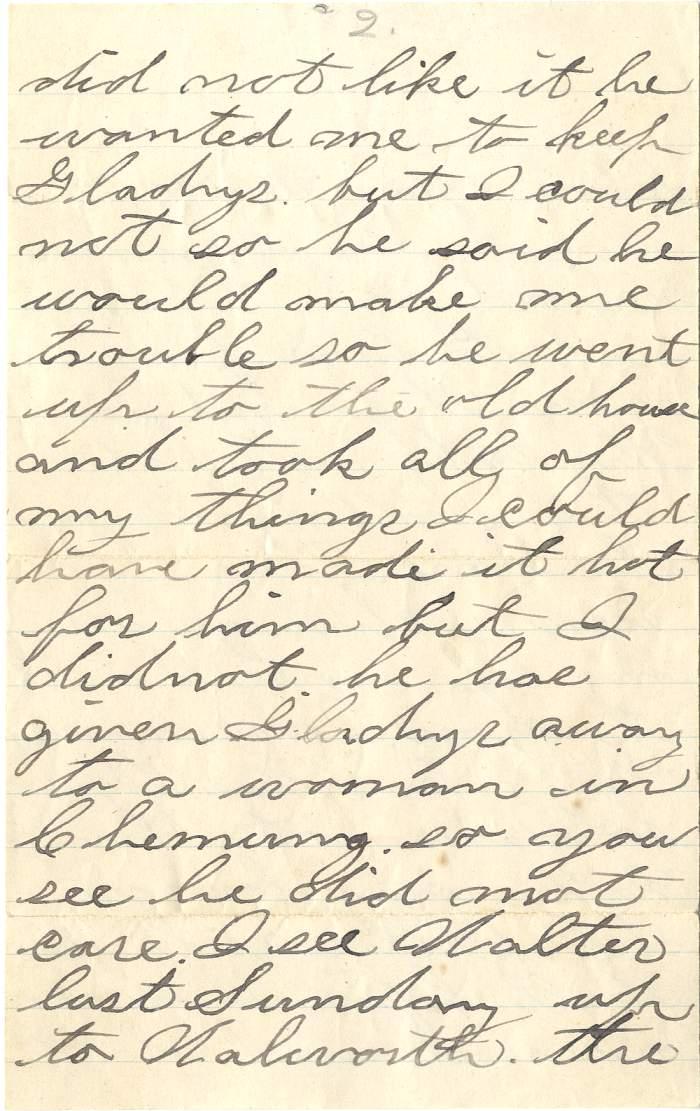 2.
did not like it he
wanted me to keep
Gladys. but I could
not so he said he
would make me
trouble so he went
up to the old house
and took all of
my things I could
have made it hot
for him but I
didnot he has
given Gladys away
to a woman in
Chemung. so you
see he did not
care. I see Walter
last Sunday up
to Walworth. the